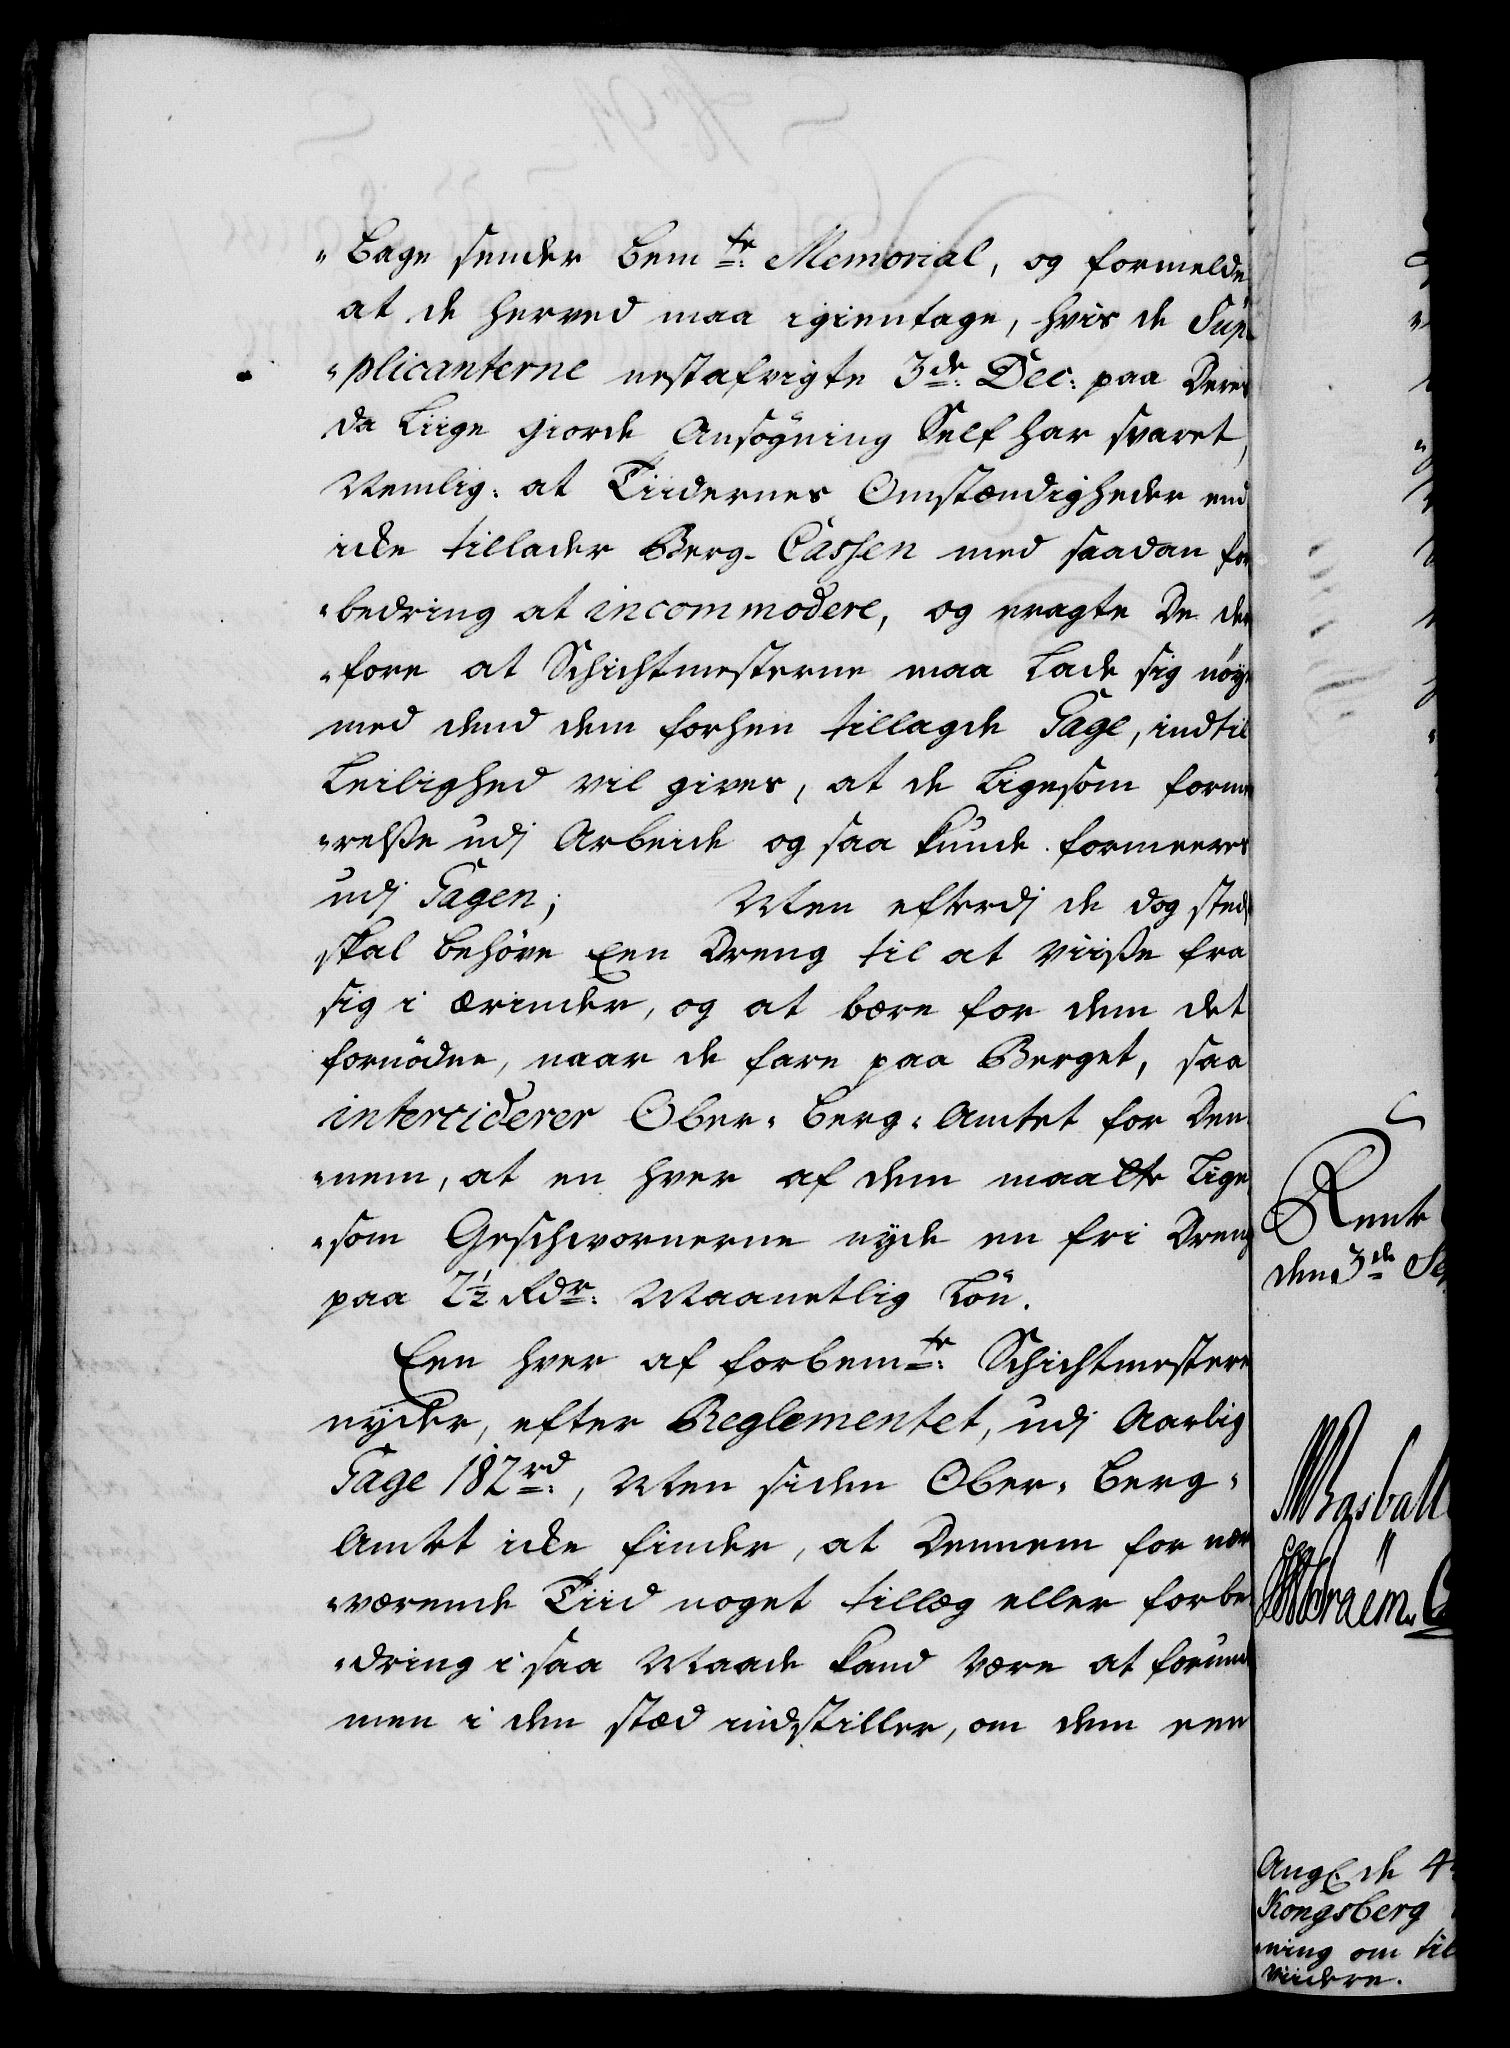 "bage sender bem.te Memorial, og formelde
at de herved maa igientage, hvis de Sup-
"plicanterne nestafvigte 3de. Dec: paa Deres
da liige giorde Ansøgning Self har svaret,
Nemlig: at Tiidernes Omstændigheder end
icke tillader Berg-Cassen med saadan for
"bedring at incommodere, og eragte De der
"fore at Schichtmesterne maa lade sig nøye
med dend dem forhen tillagde Gage, indtil
Leilighed vil gives, at de ligesom forme
"relße udj Arbeide og saa kunde formeeres
udj Gagen; Men efterdj de dog stedse
skal behøve Een Dreng til at viiße fra
sig i ærinder, og at bære for dem det
fornødne, naar de fare paa Berget, saa
interciderer Ober-Berg-Amtet for Den-
"nem, at en hver af dem maatte lige
"som Geschwornerne nyde en fri Dreng
paa 2½ Rdr: Maanetlig Løn.
Een hver af forbem.te Schichtmestere
nyder, efter Reglementet, udj Aarlig
Gage 182 rd:, Men siden Ober-Berg-
Amtet icke finder, at Dennem for nær
"værende Tiid noget tillæg eller forbe
"dring i saa Maade kand være at forunde
men i den stæd indstiller, om dem een
Rente
den 3de Se
Ang: de 4
Kongsberg
"ning om til
viidere.